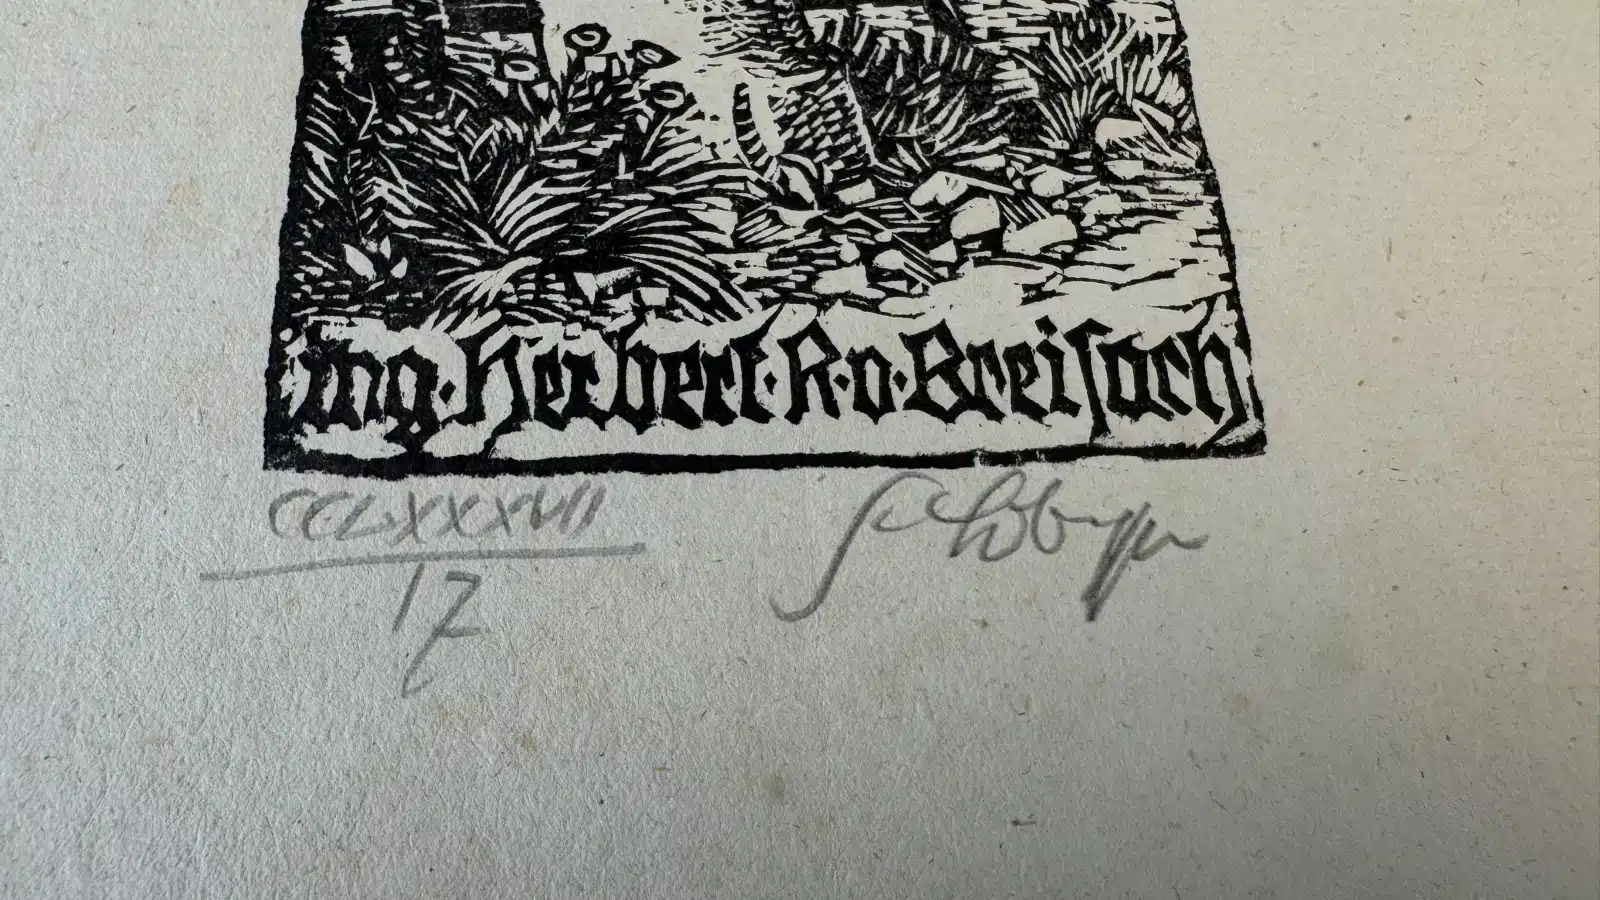 ing. Herbert·R·v·Breisach
CCCLXXXVII
17